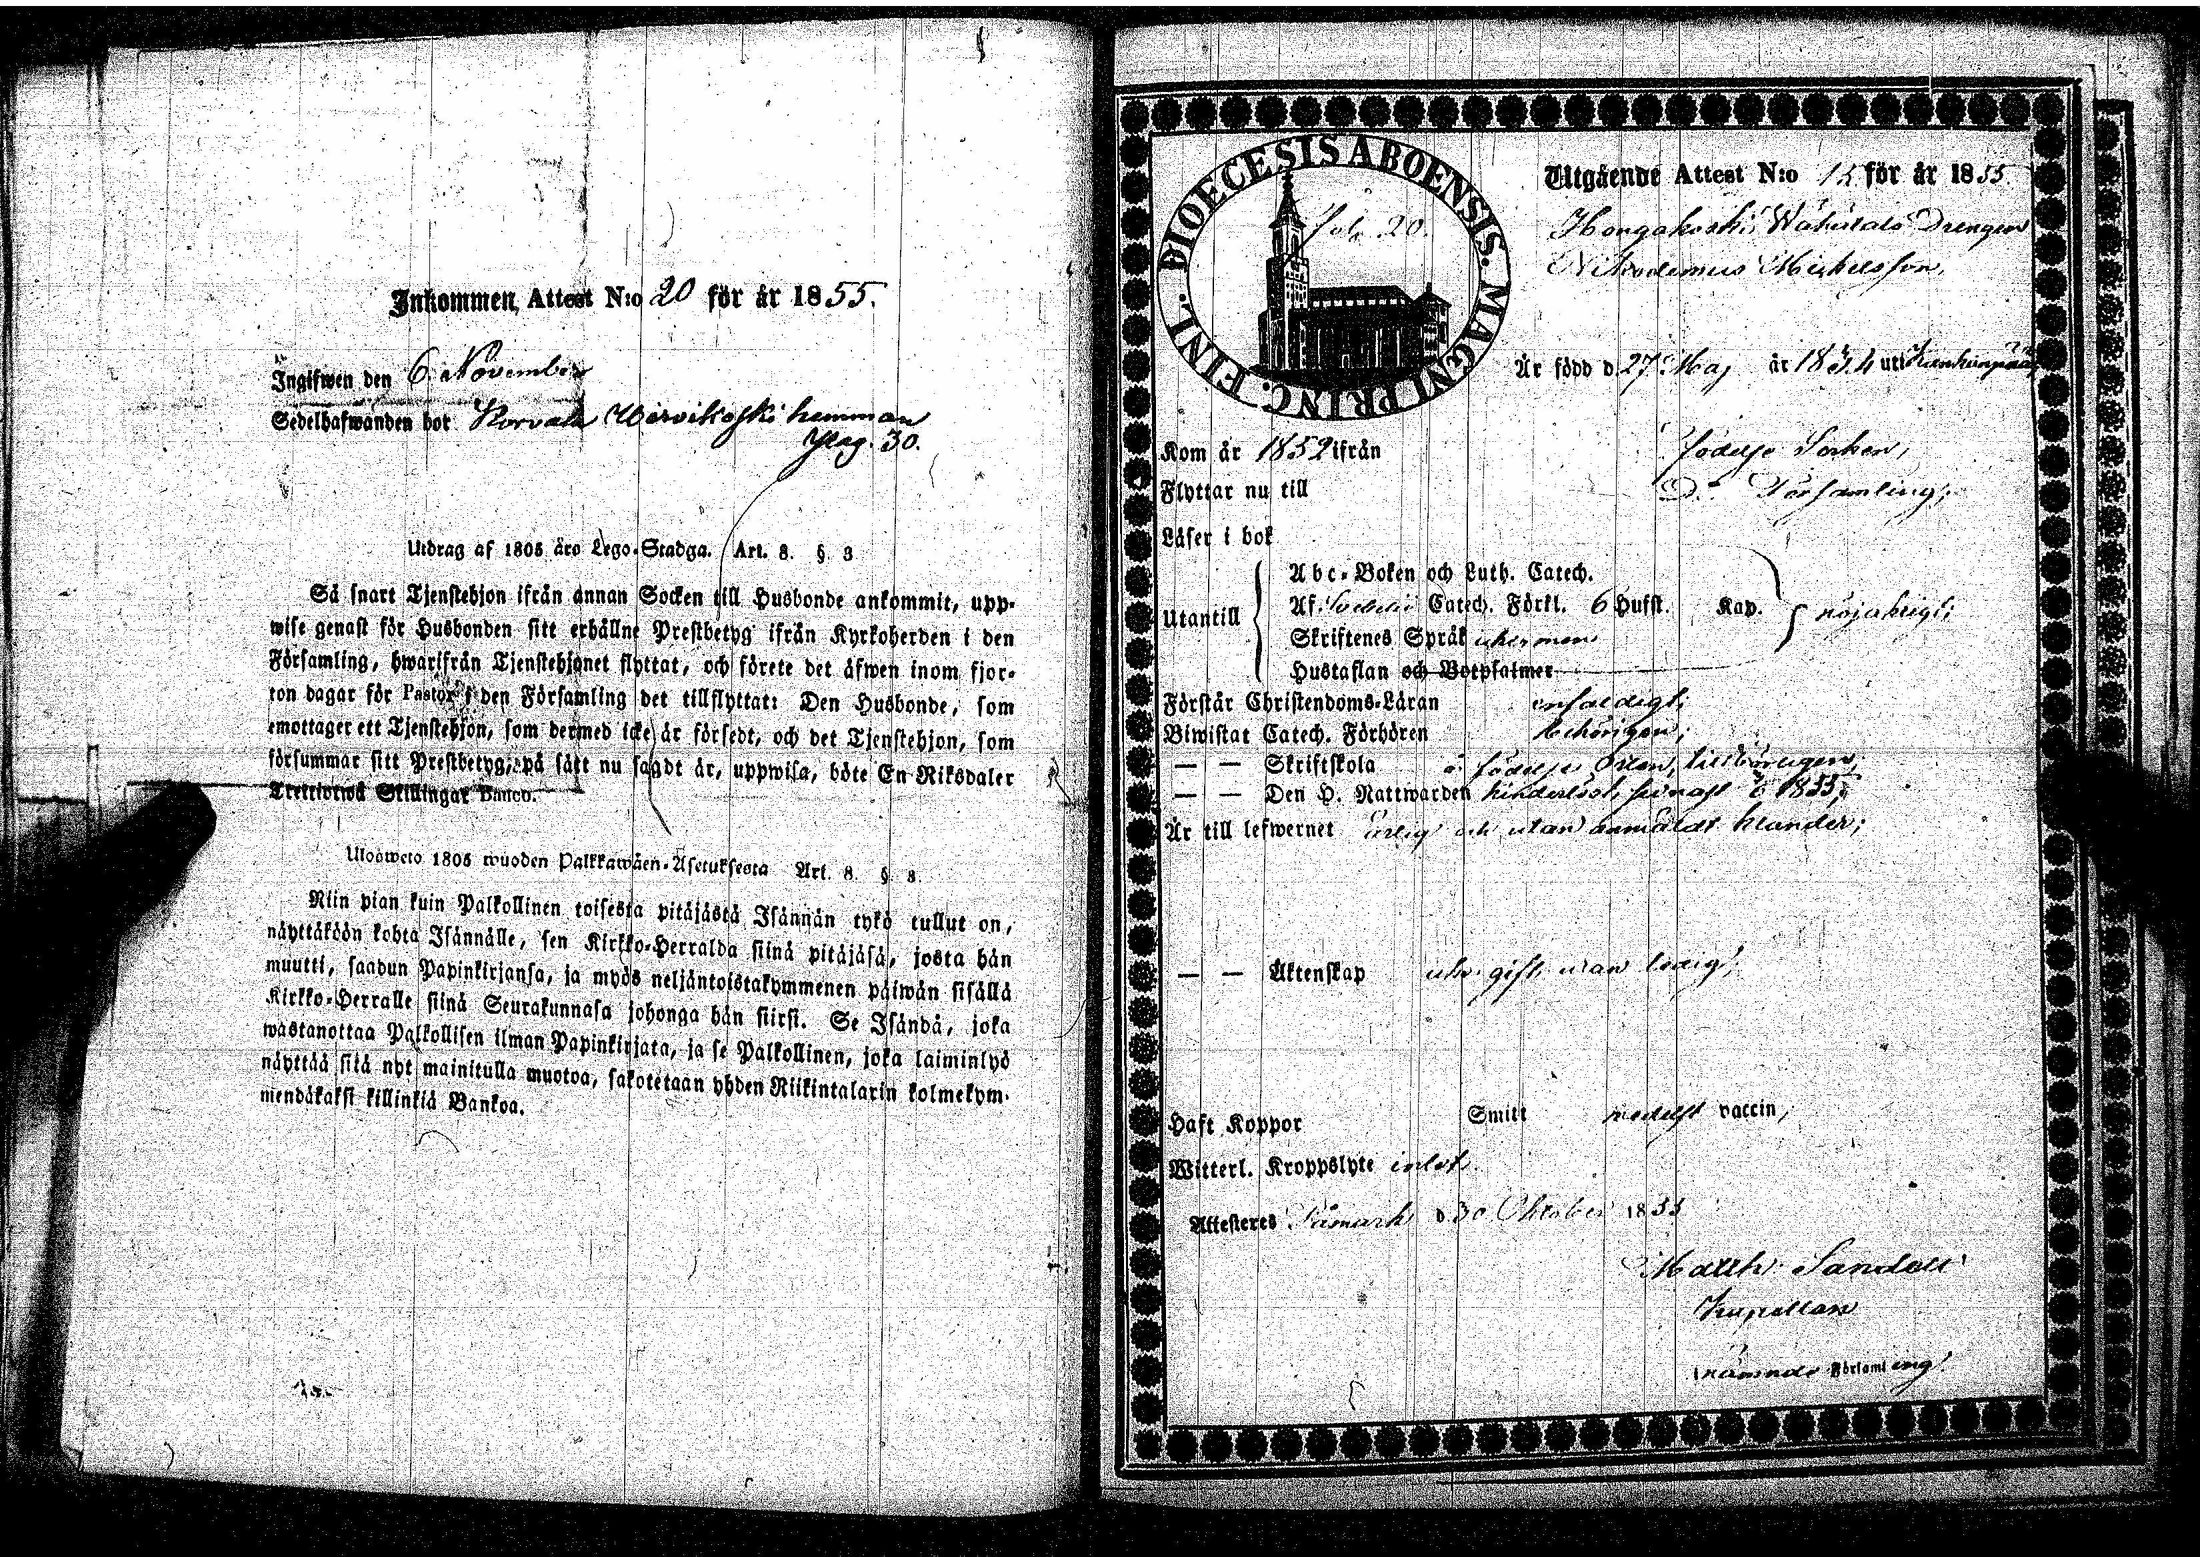 Inkommen, Attest N:o 20 för år 1855.
Ingifwen den 6 November
Sedelhafwanden bor Korvala Wervikoski hemman
pag. 30.
Utdrag af 1805 års Lego-Stadga. Art. 8. § 3
Så snart Tjenstehjon ifrån annan Socken till Husbonde ankommit, upp-
wise genast för Husbonden sitt erhållne Prestbetyg ifrån Kyrkoherden i den
Församling, hwarifrån Tjenstehjonet flyttat, och förete det äfwen inom fjor-
ton dagar för Pastor i den Församling det tillflyttat: Den Husbonde, som
emottager ett Tjenstehjon, som dermed icke är försedt, och det Tjenstehjon, som
försummar sitt Prestbetyg, på sätt nu sagdt är, uppwisa, böte En Riksdaler
Trettiotwå Skillingar Banco.
Ulosweto 1805 wuoden Palkkawäen-Asetuksesta Art. 8. § 3.
Niin pian kuin Palkollinen toisesta pitäjästä Isännän tykö tullut on,
näyttäköön kohta Isännälle, sen Kirkko-Herralda siinä pitäjäsä, josta hän
muutti, saadun Papinkirjansa, ja myös neljäntoistakymmenen päiwän sisällä
Kirkko-Herralle siinä Seurakunnasa johonga hän siirsi. Se Isändä, joka
wastanottaa Palkollisen ilman Papinkirjata, ja se Palkollinen, joka laiminlyö
näyttää sitä nyt mainitulla muotoa, sakotetaan yhden Riikintalarin kolmekym-
mendäkaksi killinkiä Bankoa.
DIOECESIS ABOENSIS. MAGNI PRINC. FINL.
20.
Utgående Attest N:o 15 för år 1855.
Hongakoski Drengen
Nikodemus Mickelsson,
Är född d. 27 Maj år 1834 uti Kankanpää
Kom år 1852 ifrån födelse Socken,
Flyttar nu till D:o Församling;
Läser i bok
Utantill
Abc-Boken och Luth. Catech.
Af Catech. Förkl. 6 Hufst. Kap. nöjaktigt;
Skriftenes Språk
Hustaflan och Botpsalmer
Förstår Christendoms-Läran enfaldigt;
Biwistat Catech. Förhören behörigen;
— — Skriftskola å födelse Orten,
— — Den H. Nattwarden senast 1855;
Är till lefwernet ärlig och utan anmäldt klander;
— — Äktenskap gift, utan ledig;
Haft Koppor Smitt medelst vaccin,
Witterl. Kroppslyte intet.
Attesteres Påmark d 30 Oktober 1855
Matth. Sandell
Kapellan
i nämnde Församling.